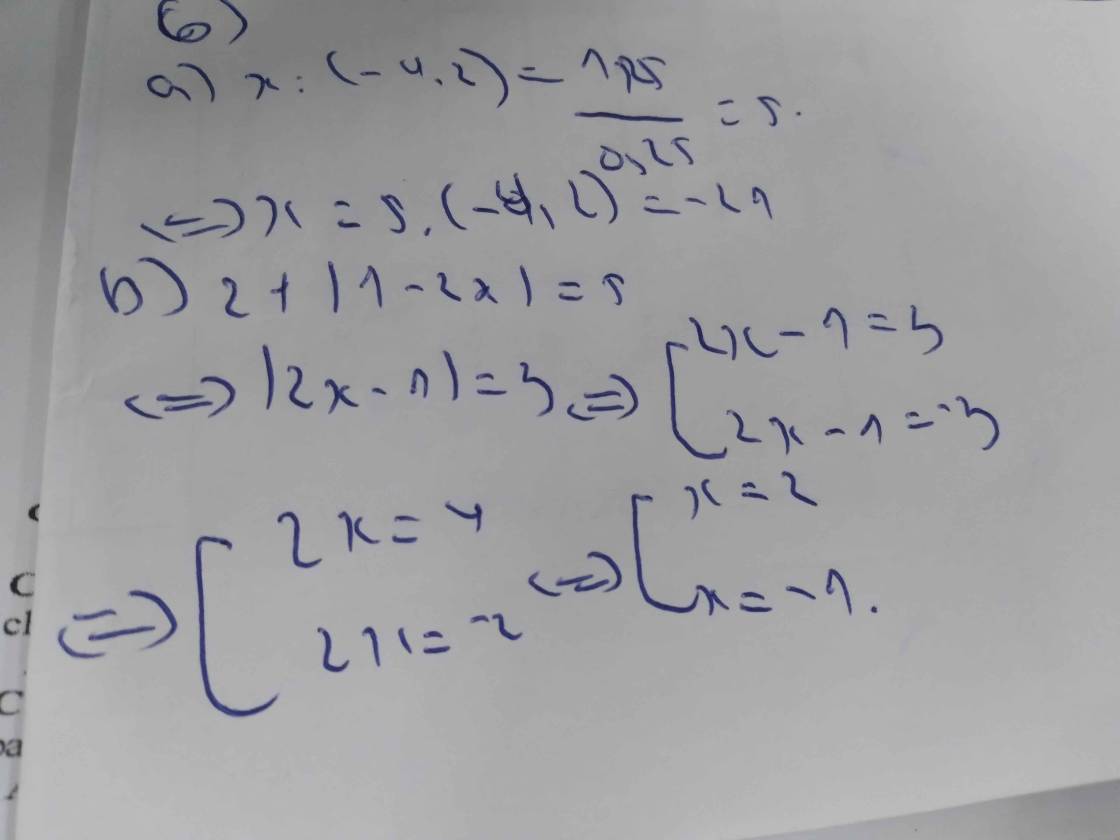 6)
a) x : (-4,2) = 1,25 / 0,25 = 5.
<=> x = 5 . (-4,2) = -21
b) 2 + |1 - 2x| = 5
<=> |2x - 1| = 3 <=> [ 2x - 1 = 3
2x - 1 = -3
<=> [ 2x = 4
2x = -2
<=> [ x = 2
x = -1.